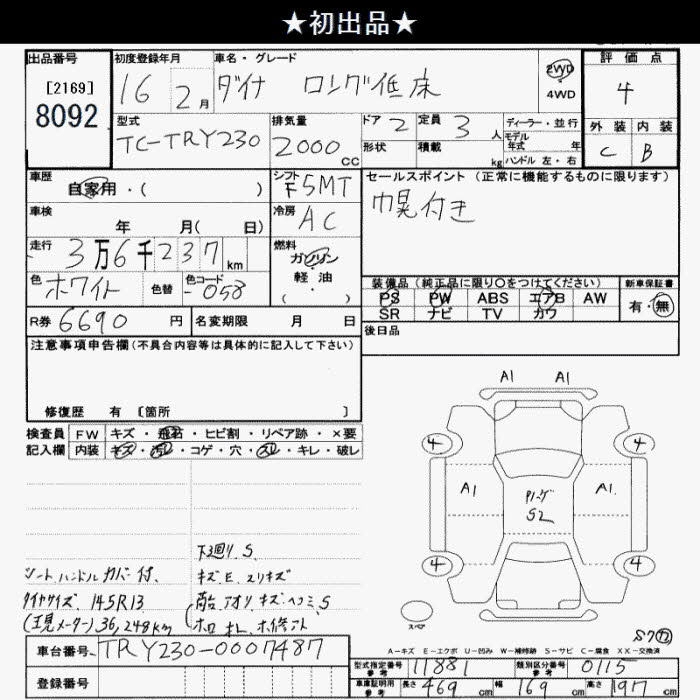 ★初出品★
出品番号
[2169]
8092
初度登録年月
16 2月
車名・グレード
ダイナ ロング低床
2WD
4WD
評価点
4
外装 内装
C B
型式
TC-TRY230
排気量
2000cc
ドア 2
形状
定員 3人
積載 kg
ディーラー・並行
モデル年式 年
ハンドル 左・右
車歴
自家用・( )
シフト
F5MT
セールスポイント (正常に機能するものに限ります)
幌付き
車検
年 月( 日)
冷房
AC
走行
3万6千237km
燃料
ガソリン
軽・油
( )
色
ホワイト
色替
色コード
-058
装備品 (純正品に限り○をつけてください)
新車保証書
PS PW ABS エアB AW
SR ナビ TV カワ
有・無
R券 6690円
名変期限 月 日
後日品
注意事項申告欄(不具合内容等は具体的に記入して下さい)
修復歴 有 [箇所 ]
検査員記入欄
FW キズ・飛石・ヒビ割・リペア跡・×要
内装 キズ・汚れ・コゲ・穴・スレ・キレ・破レ
A1 A1
4 4
A1 A1
S2
4 4
スペア
下回り.S
シート ハンドル カバー付.
キズE.スリキズ
タイヤサイズ 145R13
(現メーター)36,248km
A-キズ E-エクボ U-凹み W-補修跡 S-サビ C-腐食 XX-交換済
車台番号
TRY230-0007487
登録番号
型式指定番号参考
11881
類別区分番号参考
0115
車庫証明用参考
長さ 469cm
幅 169cm
高さ 197cm